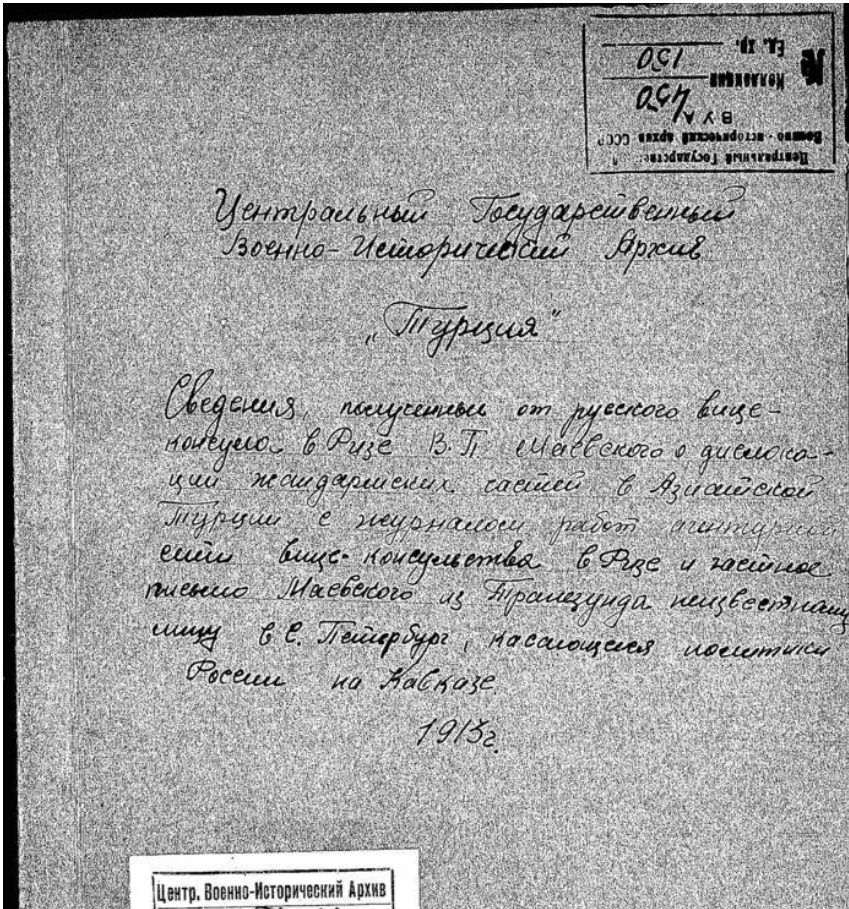 Центральный Государствен:
Военно-исторический архив СССР
ВУА
450
Коллекция
150
№ Ед. хр.
Центральный Государственный
Военно-Исторический Архив
„Турция"
Сведения, полученные от русского вице-
консула в Ризе В. П. Маевского о дислока-
ции жандармских частей в Азиатской
Турции с журналом работ агентурной
сети вице-консульства в Ризе и частное
письмо Маевского из Трапезунда неизвестному
лицу в С. Петербург, касающееся политики
России на Кавказе.
1913г.
Центр. Военно-Исторический Архив